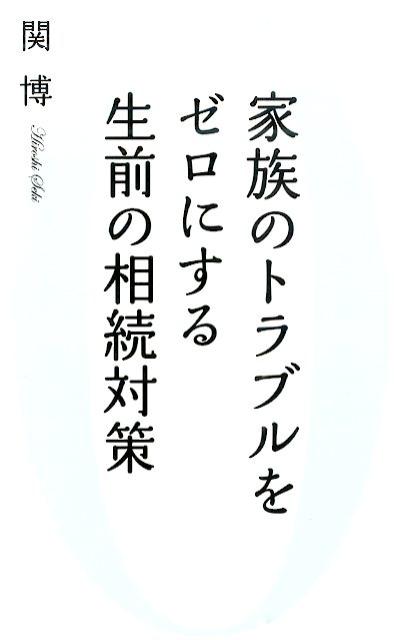 家族のトラブルを
ゼロにする
生前の相続対策
関 博
Hiroshi Seki